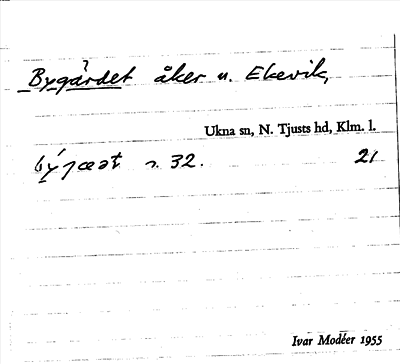 Bygärdet åker u. Ekevik,
Ukna sn, N. Tjusts hd, Klm. l.
n. 32. 21
Ivar Modéer 1955